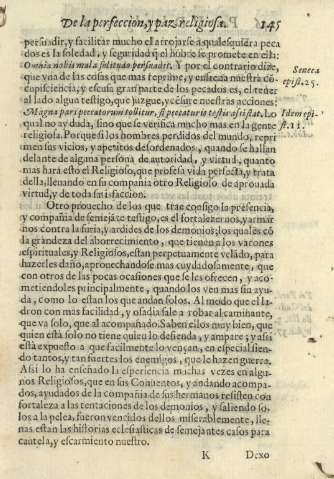 De la perfeccion, y paz religiosa. 145
persuadir, y facilitar mucho el arrojarse à qualesquiera peca
dos es la soledad, y seguridad q̃ el hobre se promete en ella:
Omnia nobis mala solitudo persuadet. Y por el contrario dize,
que vna de las cosas que mas reprime, y enfrena nuestra cõ
cupisciencia, y escusa gran parte de los pecados es, el tener
al lado algun testigo, que juzgue, y cẽsure nuestras acciones:
Magna pars peccatorum tollitur, si peccaturis testis assistat. Lo
qual no ay duda, sino que se verifica mucho mas en la gente
religiosa. Porque si los hombres perdidos del mundo, repri
men sus vicios, y apetitos desordenados, quando se hallan
delante de alguna persona de autoridad, y virtud, quanto
mas hará esto el Religioso, que professa vida perfecta, y trata
della, lleuando en su compañia otro Religioso de aprouada
virtud, y de toda satisfaccion.
Seneca
epist. 25.
Idem epi-
st. 11.
Otro prouecho de los que trae consigo la presencia,
y compañia de semejãte testigo, es el fortalezernos, y armar
nos contra la furia, y ardides de los demonios; los quales cõ
la grandeza del aborrecimiento, que tienen a los varones
espirituales, y Religiosos, estan perpetuamente velãdo, para
hazerles daño, aprouechandose mas cuydadosamente, que
con otros de las pocas ocasiones que se les ofrecen, y aco-
metiendoles principalmente, quando los ven mas sin ayu-
da, como lo estan los que andan solos. Al modo que el la-
dron con mas facilidad, y osadia sale a robar al caminante,
que va solo, que al acompañado. Saben ellos muy bien, que
quien està solo no tiene quien lo defienda, y ampare; y assi
està expuesto a que facilmente lo vençan, en especial sien-
do tantos, y tan fuertes los enemigos, que le hazen guerra.
Assi lo ha enseñado la esperiencia muchas vezes en algu-
nos Religiosos, que en sus Conuentos, y andando acompa-
dos, ayudados de la compañia de sus hermanos resisten con
fortaleza a las tentaciones de los demonios, y saliendo so-
los a la pelea, fueron vencidos dellos miserablemente, lle-
nas estan las historias eclesiasticas de semejantes casos para
cautela, y escarmiento nuestro.
K Dexo